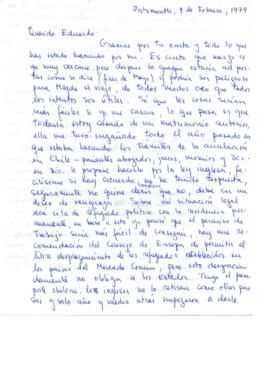 Portsmouth, 9 de Febrero, 1979
Querido Eduardo
Gracias por tu carta y todo lo que
has estado haciendo por mi. Es cierto que mayo es
ya muy cercano, pero después la guagua estaría ad por-
tas como se dice (fines de Mayo) y podría ser peligroso
para Magda el viaje, de todos modos creo que todos
los intentos son útiles. Sí que las cosas serían
más fáciles si yo me casara, lo que pasa es que
todavía estoy casado de mi matrimonio anterior,
ella me tuvo engañado todo el año pasado en
que estaba haciendo los trámites de la anulación
en Chile - parientes abogados, jueces, momios y DC:
sin DC. Le propuse hacerlo por la ley inglesa, fa-
cilísimo si hay acuerdo, no he tenido respuesta,
seguramente no quiere
deseo de venganza. Sobre mi situación legal
acá es la de refugiado político con la residencia per-
manente, en base a esto yo pensé que el permiso de
trabajo sería más fácil de conseguir, hay una re-
comendación del Consejo de Europa de permitir el
libre desplazamiento de los refugiados establecidos en
los países del Mercado Común, pero esto desgracia-
damente no obliga a los Estados. Tengo el pasa-
porte chileno, los ingleses no lo retiran como otros paí-
ses y solo año y medio atrás empezaron a darle